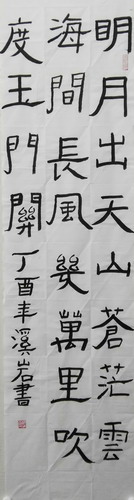 明月出天山蒼茫雲
海間長風幾萬里吹
度玉門關丁酉年溪岩書